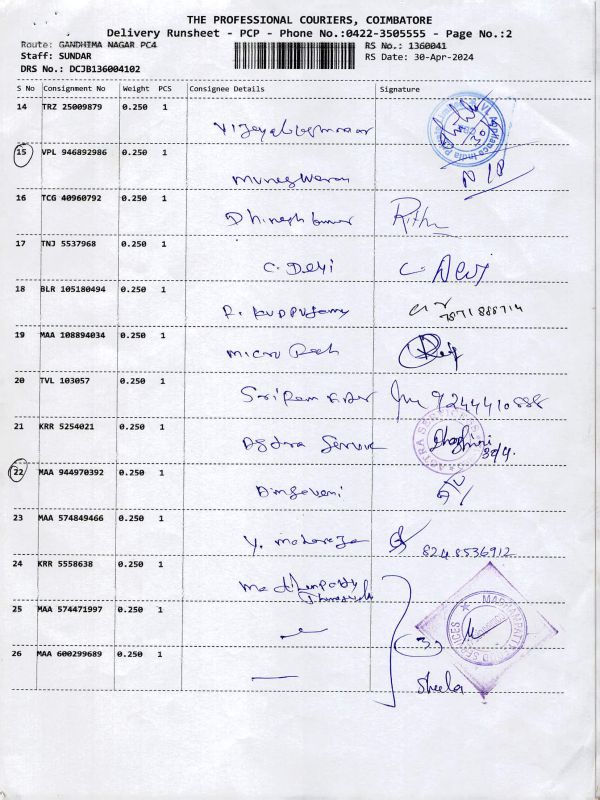 THE PROFESSIONAL COURIERS, COIMBATORE
Delivery Runsheet - PCP - Phone No.:0422-3505555 - Page No.:2
Route: GANDHIMA NAGAR PC4 RS No.: 1360041
Staff: SUNDAR RS Date: 30-Apr-2024
DRS No.: DCJB136004102
S No Consignment No Weight PCS Consignee Details Signature
14 TRZ 25009879 0.250 1
15 VPL 946892986 0.250 1
Muneswaran
16 TCG 40960792 0.250 1
Dhinesh kumar
17 TNJ 5537968 0.250 1
C. Devi C. Devi
18 BLR 105180494 0.250 1
R. Kuppusamy
19 MAA 108894034 0.250 1
Micro
20 TVL 103057 0.250 1
9244410888
21 KRR 5254021 0.250 1
30/4
22 MAA 944970392 0.250 1
23 MAA 574849466 0.250 1
Y. 8248536912
24 KRR 5558638 0.250 1
25 MAA 574471997 0.250 1
3
26 MAA 600299689 0.250 1
Sheela